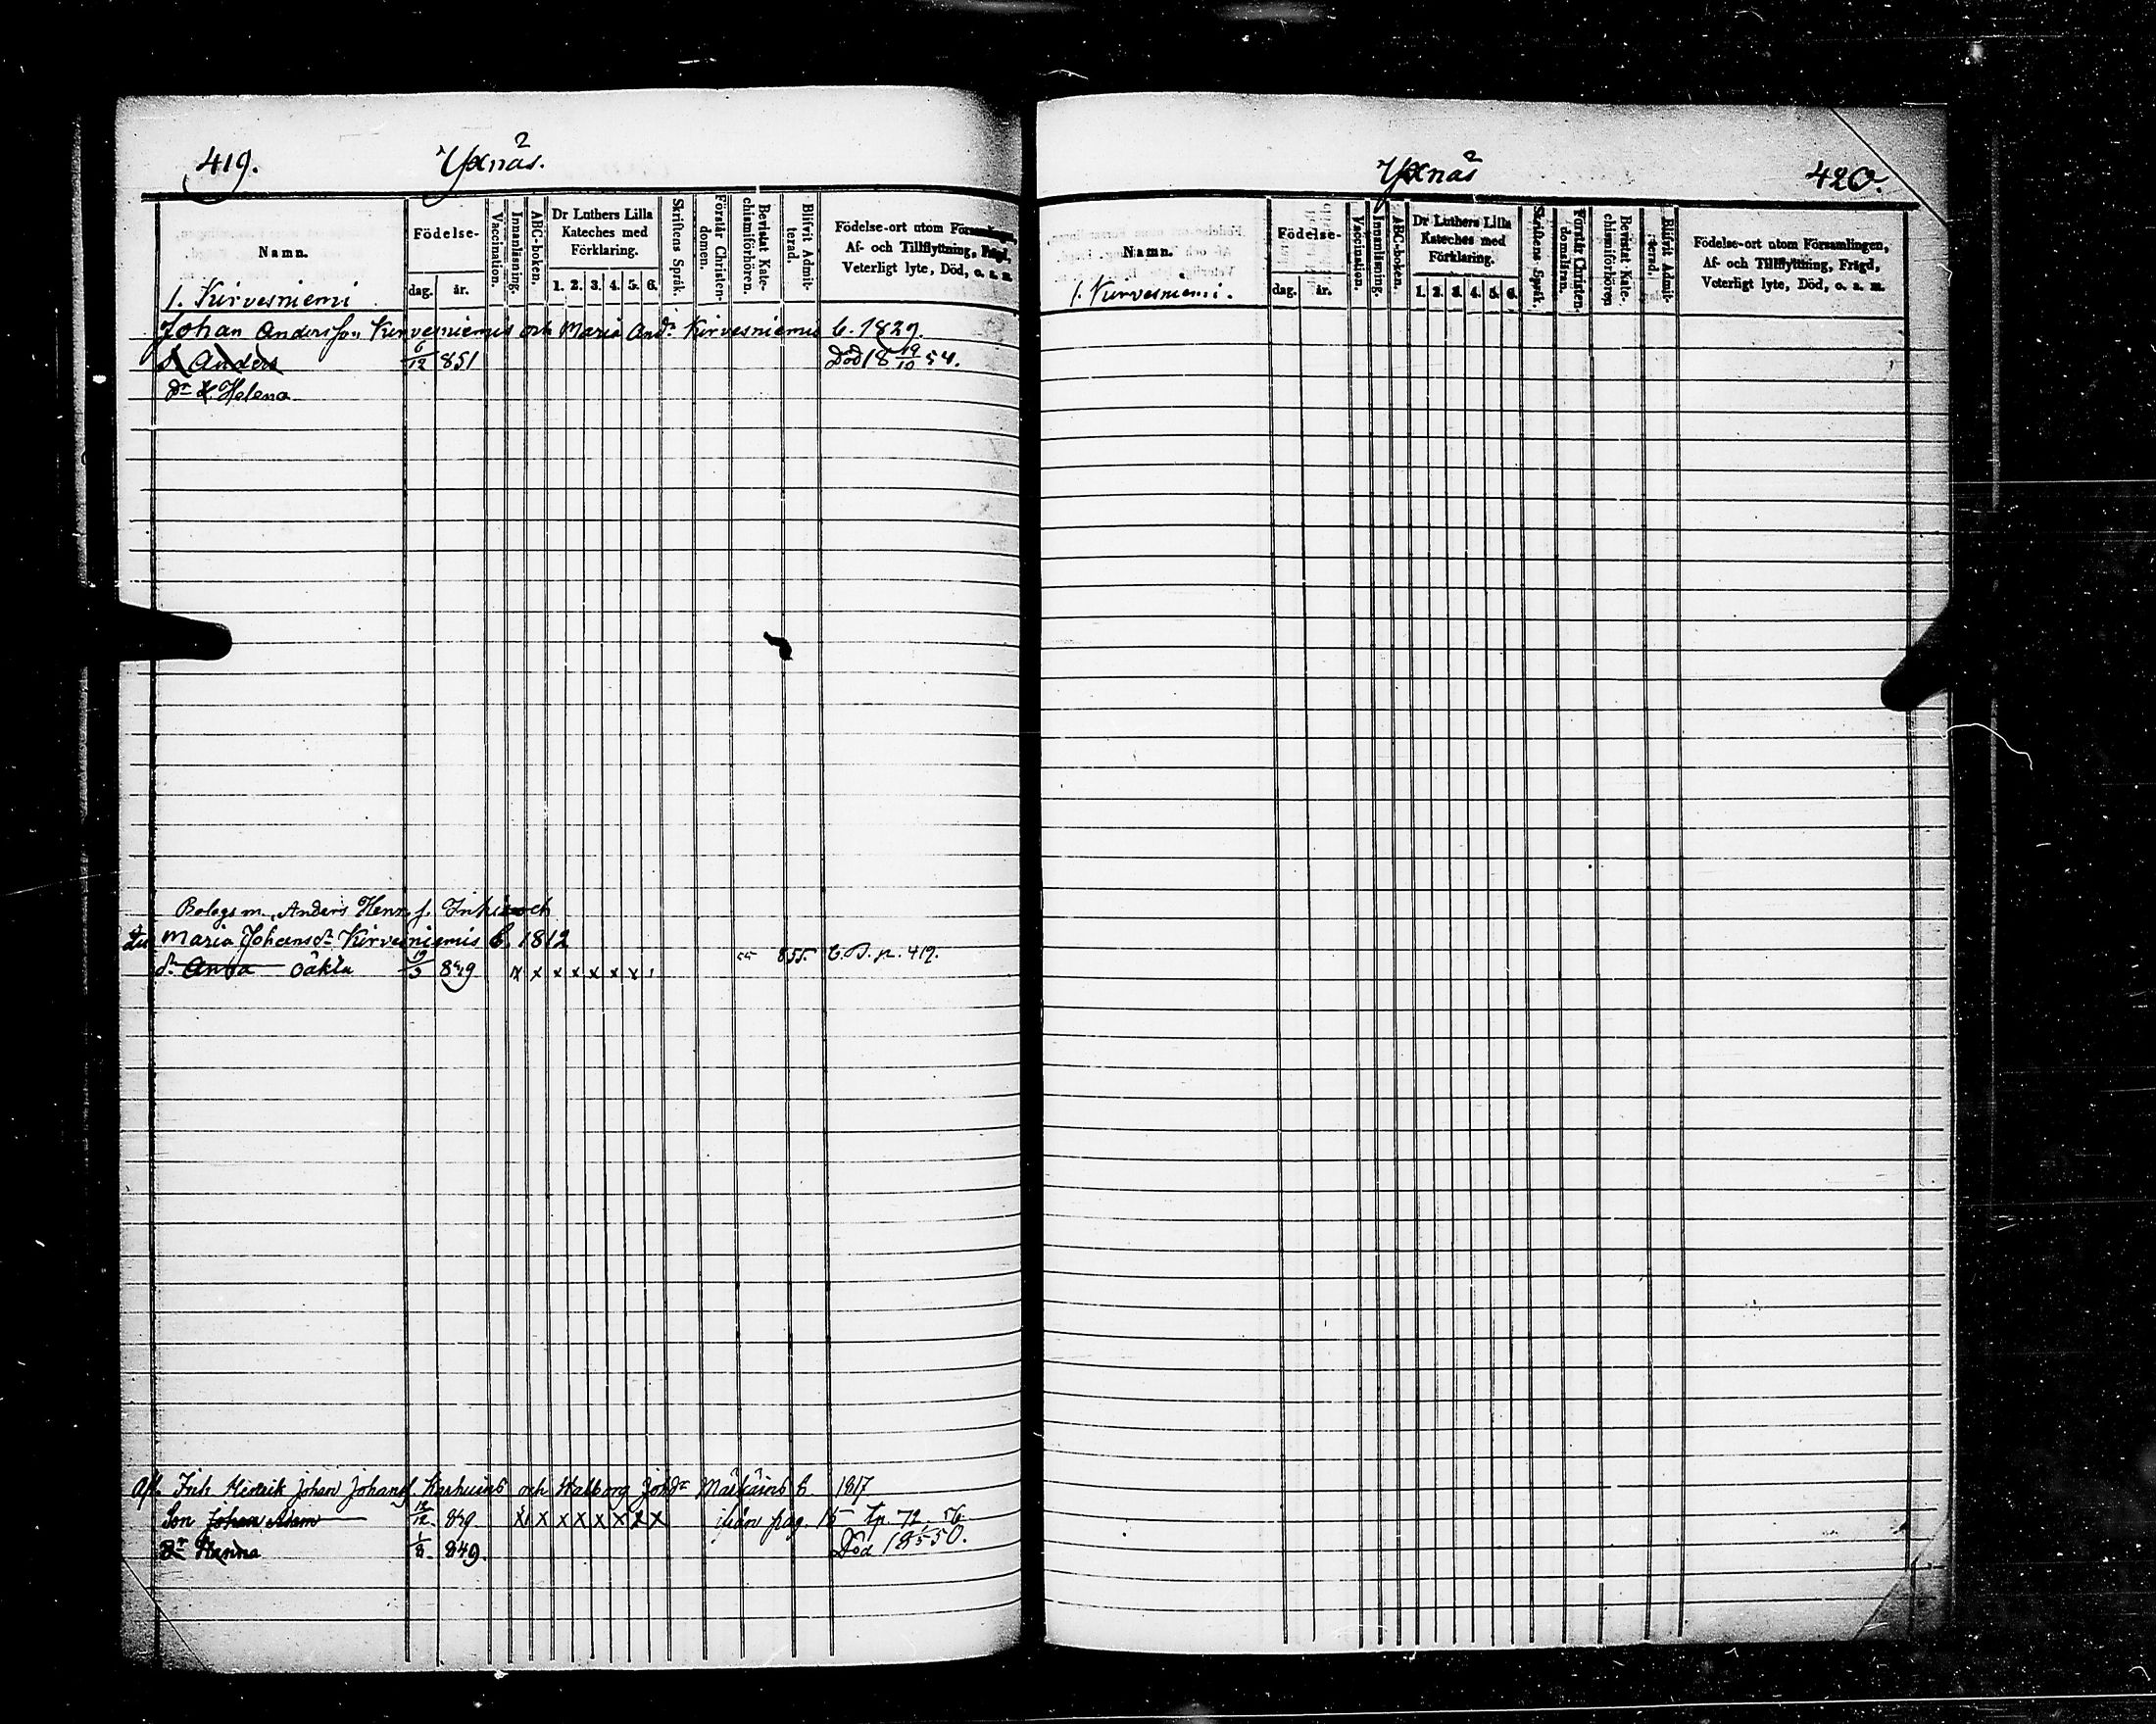 419. Yxnäs.
Namn. Födelse- dag. år. Vaccination. Innanläsning. ABC-boken. Dr Luthers Lilla Kateches med Förklaring. 1. 2. 3. 4. 5. 6. Skriftens Språk. Förstår Christen-domen. Bevistat Kate-chismiförhören. Blifvit Admit-terad. Födelse-ort utom Församlingen, Af- och Tillflyttning, Frägd, Veterligt lyte, Död, o. s. m.
1. Kirvesniemi
Johan Andersson Kirvesniemis och Maria Andr Kirvesniemis b. 1829.
S. Anders 6/12 851 Död 18 19/10 54.
Dr Helena
Bolags m. Anders Henr. s. och
Maria Johansdr Kirvesniemis b. 1812
dr 19/3 849 x x x x x x x 855 C.B. p. 419.
Henrik Johan Johans. och Walborg Johdr b. 1817
Son Johan Adam 12/12 839 x x x x x x x x ifrån pag. 15 tp. 72. 56
Dr Hanna 1/8 849. Död 18 50.
Yxnäs 420.
Namn. Födelse- dag. år. Vaccination. Innanläsning. ABC-boken. Dr Luthers Lilla Kateches med Förklaring. 1. 2. 3. 4. 5. 6. Skriftens Språk. Förstår Christen-domsläran. Bevistat Kate-chismiförhören Blifvit Admit-terad. Födelse-ort utom Församlingen, Af- och Tillflyttning, Frägd, Veterligt lyte, Död, o. s. m.
1. Kirvesniemi.